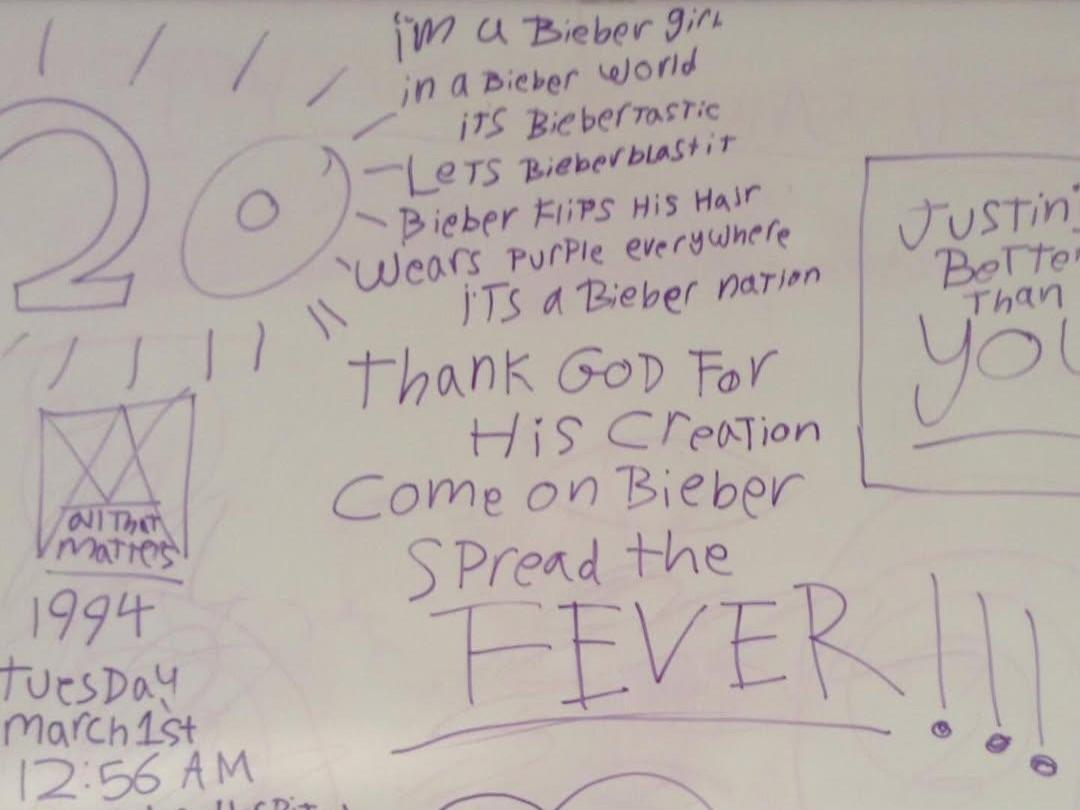 20
i'm a Bieber girl
in a Bieber world
iTS BieberTasTic
LeTS Bieberblastit
Bieber FliPS His Hair
Wears PurPle everywhere
iTS a Bieber naTion
Thank GOD For
His CreaTion
Come on Bieber
SPread the
FEVER!!!
JusTin's
BeTTer
Than
YOU
all ThaT
maTTers
1994
TuesDay
march 1st
12:56 AM